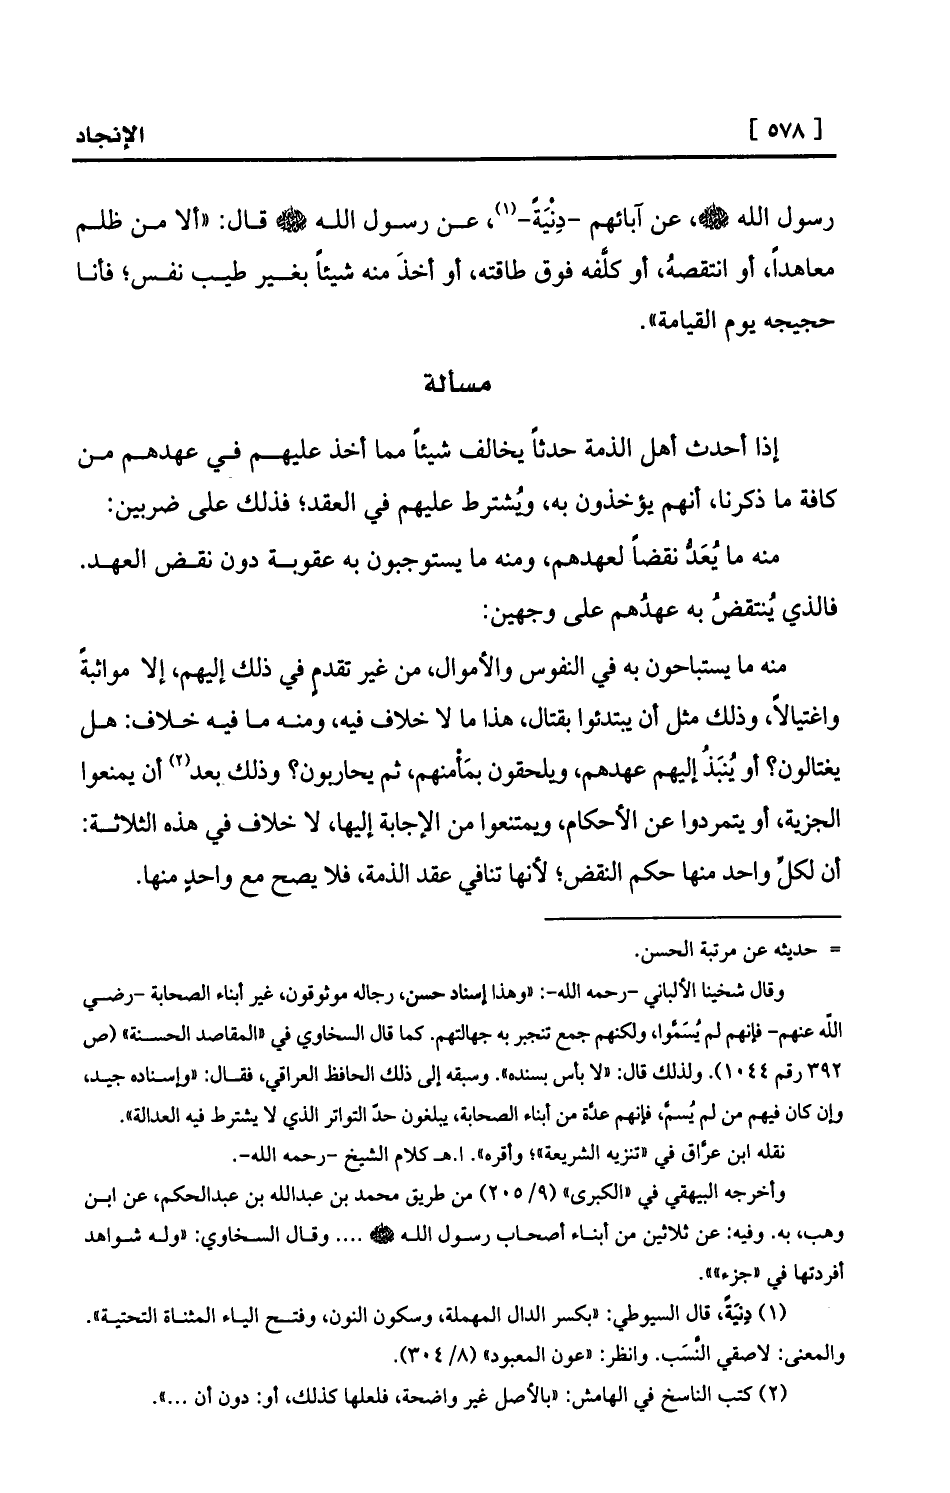 [ ٥٧٨ ]
الإنجاد
رسول الله ﷺ، عن آبائهم -دِنْيَةً-(١)، عن رسول الله ﷺ قال: «ألا من ظلم
معاهداً، أو انتقصهُ، أو كلَّفه فوق طاقته، أو أخذَ منه شيئاً بغير طيب نفس؛ فأنا
حجيجه يوم القيامة».
مسألة
إذا أحدث أهل الذمة حدثاً يخالف شيئاً مما أخذ عليهم في عهدهم من
كافة ما ذكرنا، أنهم يؤخذون به، ويُشترط عليهم في العقد؛ فذلك على ضربين:
منه ما يُعَدُّ نقضاً لعهدهم، ومنه ما يستوجبون به عقوبة دون نقض العهد.
فالذي يُنتقضُ به عهدُهم على وجهين:
منه ما يستباحون به في النفوس والأموال، من غير تقدمٍ في ذلك إليهم، إلا مواثبةً
واغتيالاً، وذلك مثل أن يبتدئوا بقتال، هذا ما لا خلاف فيه، ومنه ما فيه خلاف: هل
يغتالون؟ أو يُنبَذُ إليهم عهدهم، ويلحقون بمَأْمنهم، ثم يحاربون؟ وذلك بعد(٢) أن يمنعوا
الجزية، أو يتمردوا عن الأحكام، ويمتنعوا من الإجابة إليها، لا خلاف في هذه الثلاثة:
أن لكلِّ واحد منها حكم النقض؛ لأنها تنافي عقد الذمة، فلا يصح مع واحدٍ منها.
= حديثه عن مرتبة الحسن.
وقال شخينا الألباني -رحمه الله-: «وهذا إسناد حسن، رجاله موثوقون، غير أبناء الصحابة -رضي
الله عنهم- فإنهم لم يُسَمَّوا، ولكنهم جمع تنجبر به جهالتهم. كما قال السخاوي في «المقاصد الحسنة» (ص
٣٩٢ رقم ١٠٤٤). ولذلك قال: «لا بأس بسنده». وسبقه إلى ذلك الحافظ العراقي، فقال: «وإسناده جيد،
وإن كان فيهم من لم يُسمَّ، فإنهم عدَّة من أبناء الصحابة، يبلغون حدّ التواتر الذي لا يشترط فيه العدالة».
نقله ابن عرَّاق في «تنزيه الشريعة»؛ وأقره». ا.هـ كلام الشيخ -رحمه الله-.
وأخرجه البيهقي في «الكبرى» (٩/ ٢٠٥) من طريق محمد بن عبدالله بن عبدالحكم، عن ابن
وهب، به. وفيه: عن ثلاثين من أبناء أصحاب رسول الله ﷺ .... وقال السخاوي: «وله شواهد
أفردتها في «جزء»».
(١) دِنْيَةً، قال السيوطي: «بكسر الدال المهملة، وسكون النون، وفتح الياء المثناة التحتية».
والمعنى: لاصقي النَّسَب. وانظر: «عون المعبود» (٨/ ٣٠٤).
(٢) كتب الناسخ في الهامش: «بالأصل غير واضحة، فلعلها كذلك، أو: دون أن ...».